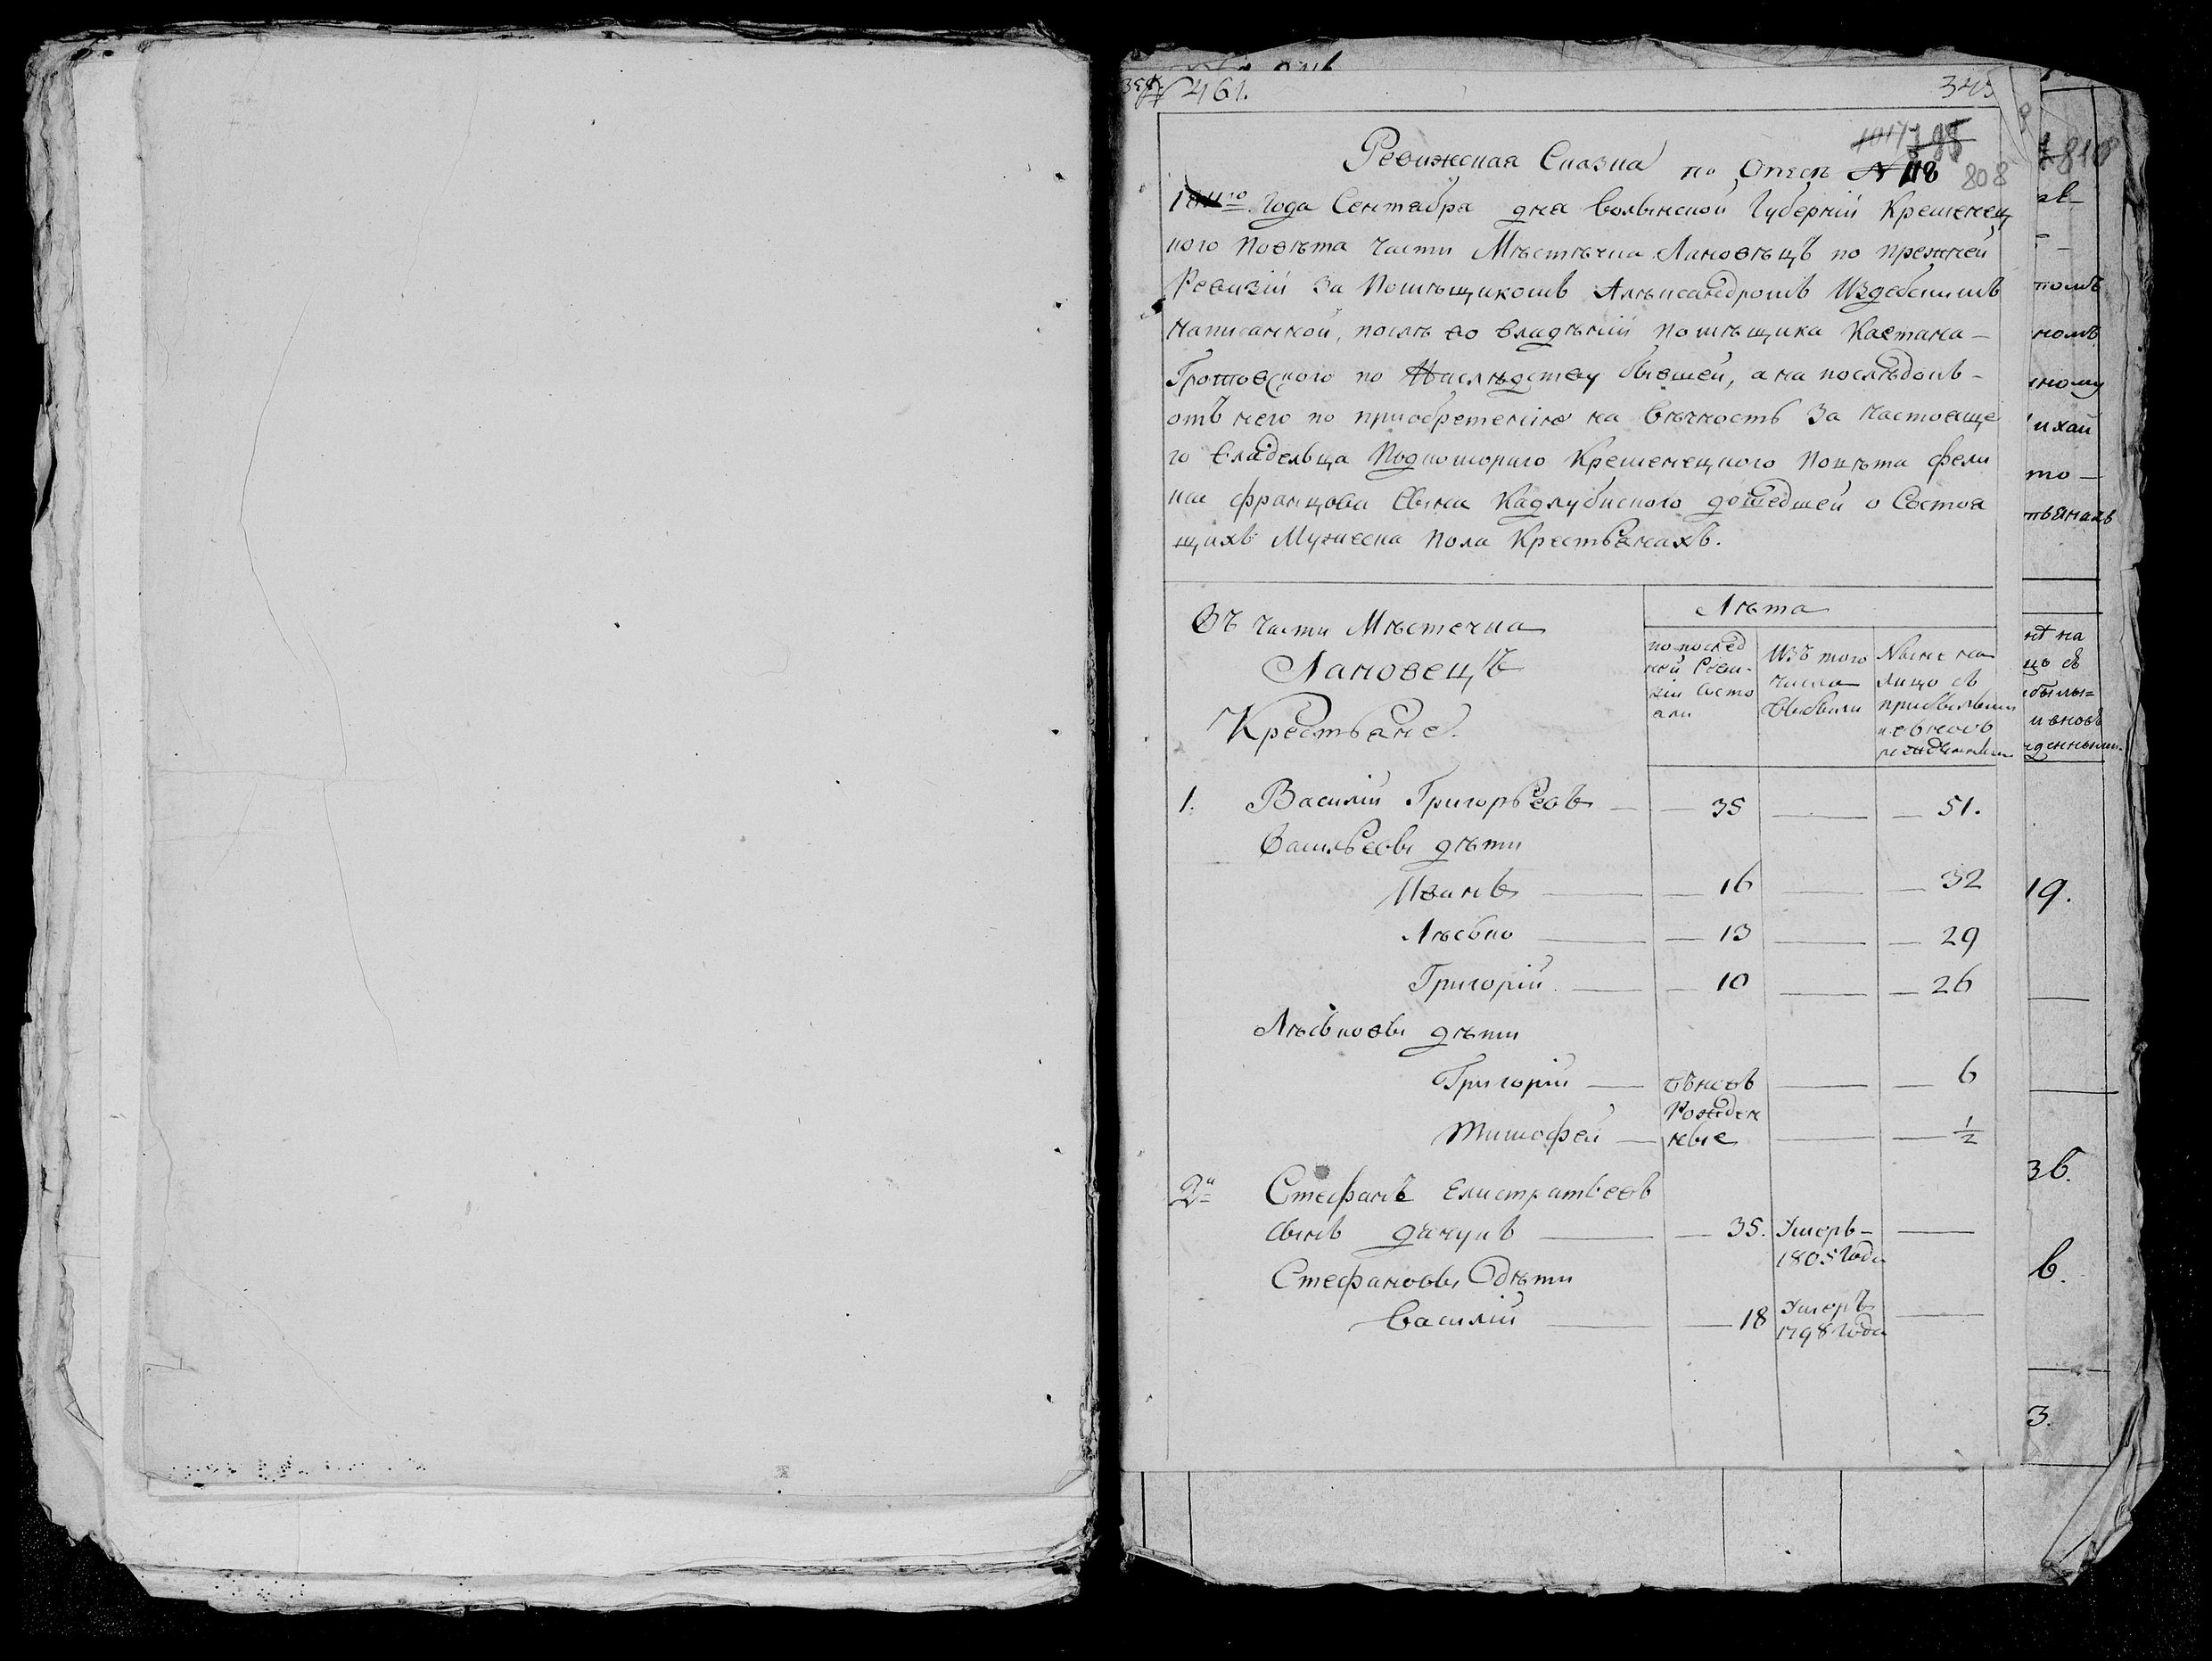 № 461. 345
Ревижская Сказка по Описи № 118 808
1811го Года Сентября дня Волынской Губерніи Кременец
кого Повѣта части Мѣстѣчка Лановѣцъ по прежней
Ревизіи за Помѣщикомъ Алѣксандромъ Издебскимъ
написанной, послѣ во владѣніи помѣщика Каетана
Громовского по Наслѣдству бывшей, а на послѣдокъ
отъ него по приобретенію на вѣчность за настояще
го владельца Подкомораго Кременецкого Повѣта Фели
кса Францова сына Кадлубиского дошедшей о Состоя
щихъ Мужеска пола Крестьянахъ.
Въ части Мѣстечка
Лановецъ
Крестьяне.
Лѣта
по послед
ней Реви-
зіи состо
яли
Изъ того
числа
выбыли
Ныне на
лицо съ
прибылыми
и вновь
рожденными
1. Василій Григорьевъ 35 51.
Васильевы дѣти
Иванъ 16 32
Лѣсько 13 29
Григорій 10 26
Лѣськовы дѣти
Григорій вновь 6
Рожден
Тимофей ные 1/2
2й Стефанъ Елистратьевъ
сынъ Дячукъ 35. Умеръ
1805 Года
Стефановы дѣти
Василій 18 Умеръ
1798 Года
810
томъ
номъ
ному
ихай
то
тьянахъ
на
цо съ
былы=
и вновь
денными
19.
36.
6.
3.